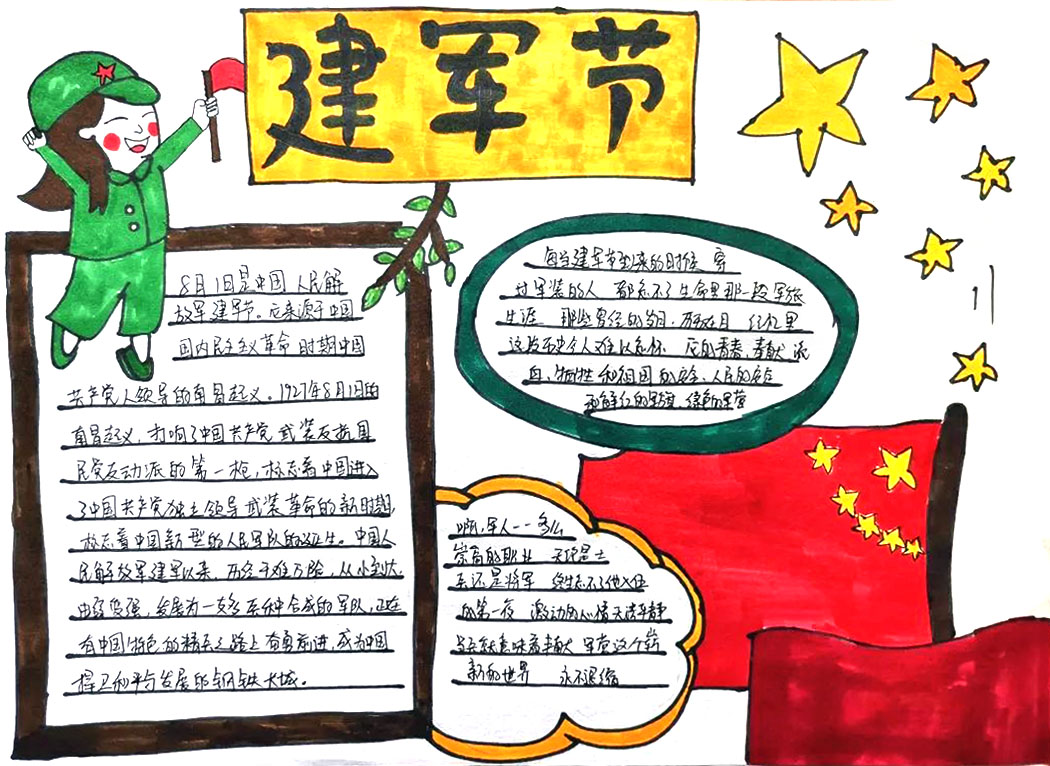 建军节
8月1日是中国人民解
放军建军节。它来源于中国
国内民主主义革命时期中国
共产党人领导的南昌起义。1927年8月1日的
南昌起义，打响了中国共产党武装反抗国
民党反动派的第一枪，标志着中国进入
了中国共产党独立领导武装革命的新时期，
标志着中国新型的人民军队的诞生。中国人
民解放军建军以来，历经千难万险，从小到大
由弱变强，发展为一支多兵种合成的军队，正在
有中国特色的精兵之路上奋勇前进，成为中国
捍卫和平与发展的钢铁长城。
每当建军节到来的时候 穿
过军装的人 都忘不了生命里那一段军旅
生涯 那些曾经的岁月，历历在目
这段历史令人难以忘怀 奉献
牺牲 和祖国的安全、人民的安危
和鲜红的军旗、绿色的军营
啊，军人--多么
崇高的职业 无论是士
兵还是将军 终生忘不了他入伍
的第一夜 激动的心情无法平静
意味着奉献 军营这个崭
新的世界 永不退缩